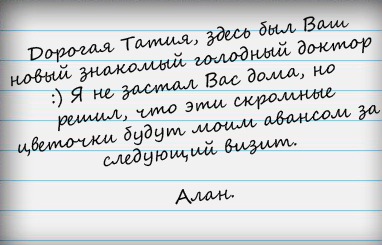 Дорогая Татия, здесь был Ваш
новый знакомый голодный доктор
:) Я не застал Вас дома, но
решил, что эти скромные
цветочки будут моим авансом за
следующий визит.
Алан.